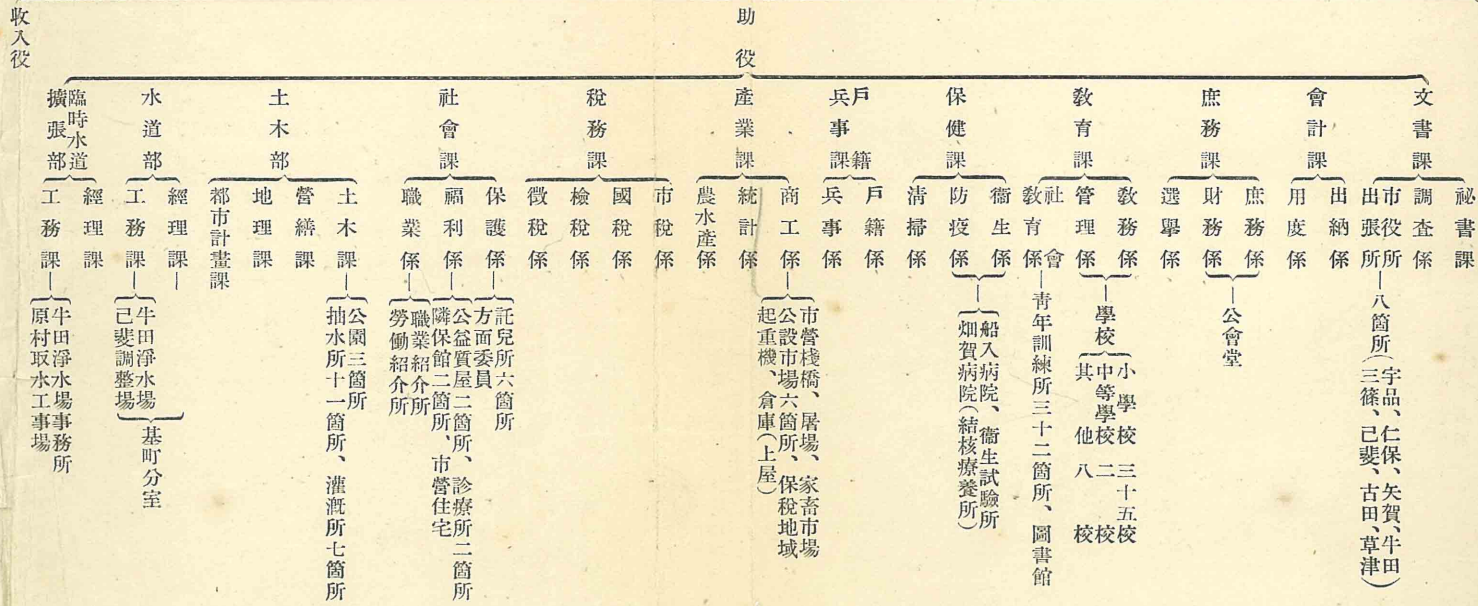 助役
文書課
祕書課
調査係
市役所出張所
八箇所(宇品、仁保、矢賀、牛田
三篠、己斐、古田、草津)
會計課
出納係
用度係
庶務課
庶務係
財務係
公會堂
選擧係
敎育課
敎務係
管理係
學校
小學校三十五校
中等學校二校
其他八校
社會敎育係
靑年訓練所三十二箇所、圖書館
保健課
衞生係
防疫係
船入病院、衞生試驗所
畑賀病院(結核療養所)
淸掃係
戶籍兵事課
戶籍係
兵事係
產業課
商工係
市營棧橋、屠場、家畜市場
公設市場六箇所、保稅地域
起重機、倉庫(上屋)
統計係
農水產係
稅務課
市稅係
國稅係
檢稅係
徵稅係
社會課
保護係
託兒所六箇所
方面委員
福利係
公益質屋二箇所、診療所二箇所
隣保館二箇所、市營住宅
職業係
職業紹介所
勞働紹介所
土木部
土木課
公園三箇所
抽水所十一箇所、灌漑所七箇所
營繕課
地理課
都市計畫課
水道部
經理課
工務課
牛田淨水場
己斐調整場
基町分室
臨時水道擴張部
經理課
工務課
牛田淨水場事務所
原村取水工事場
收入役